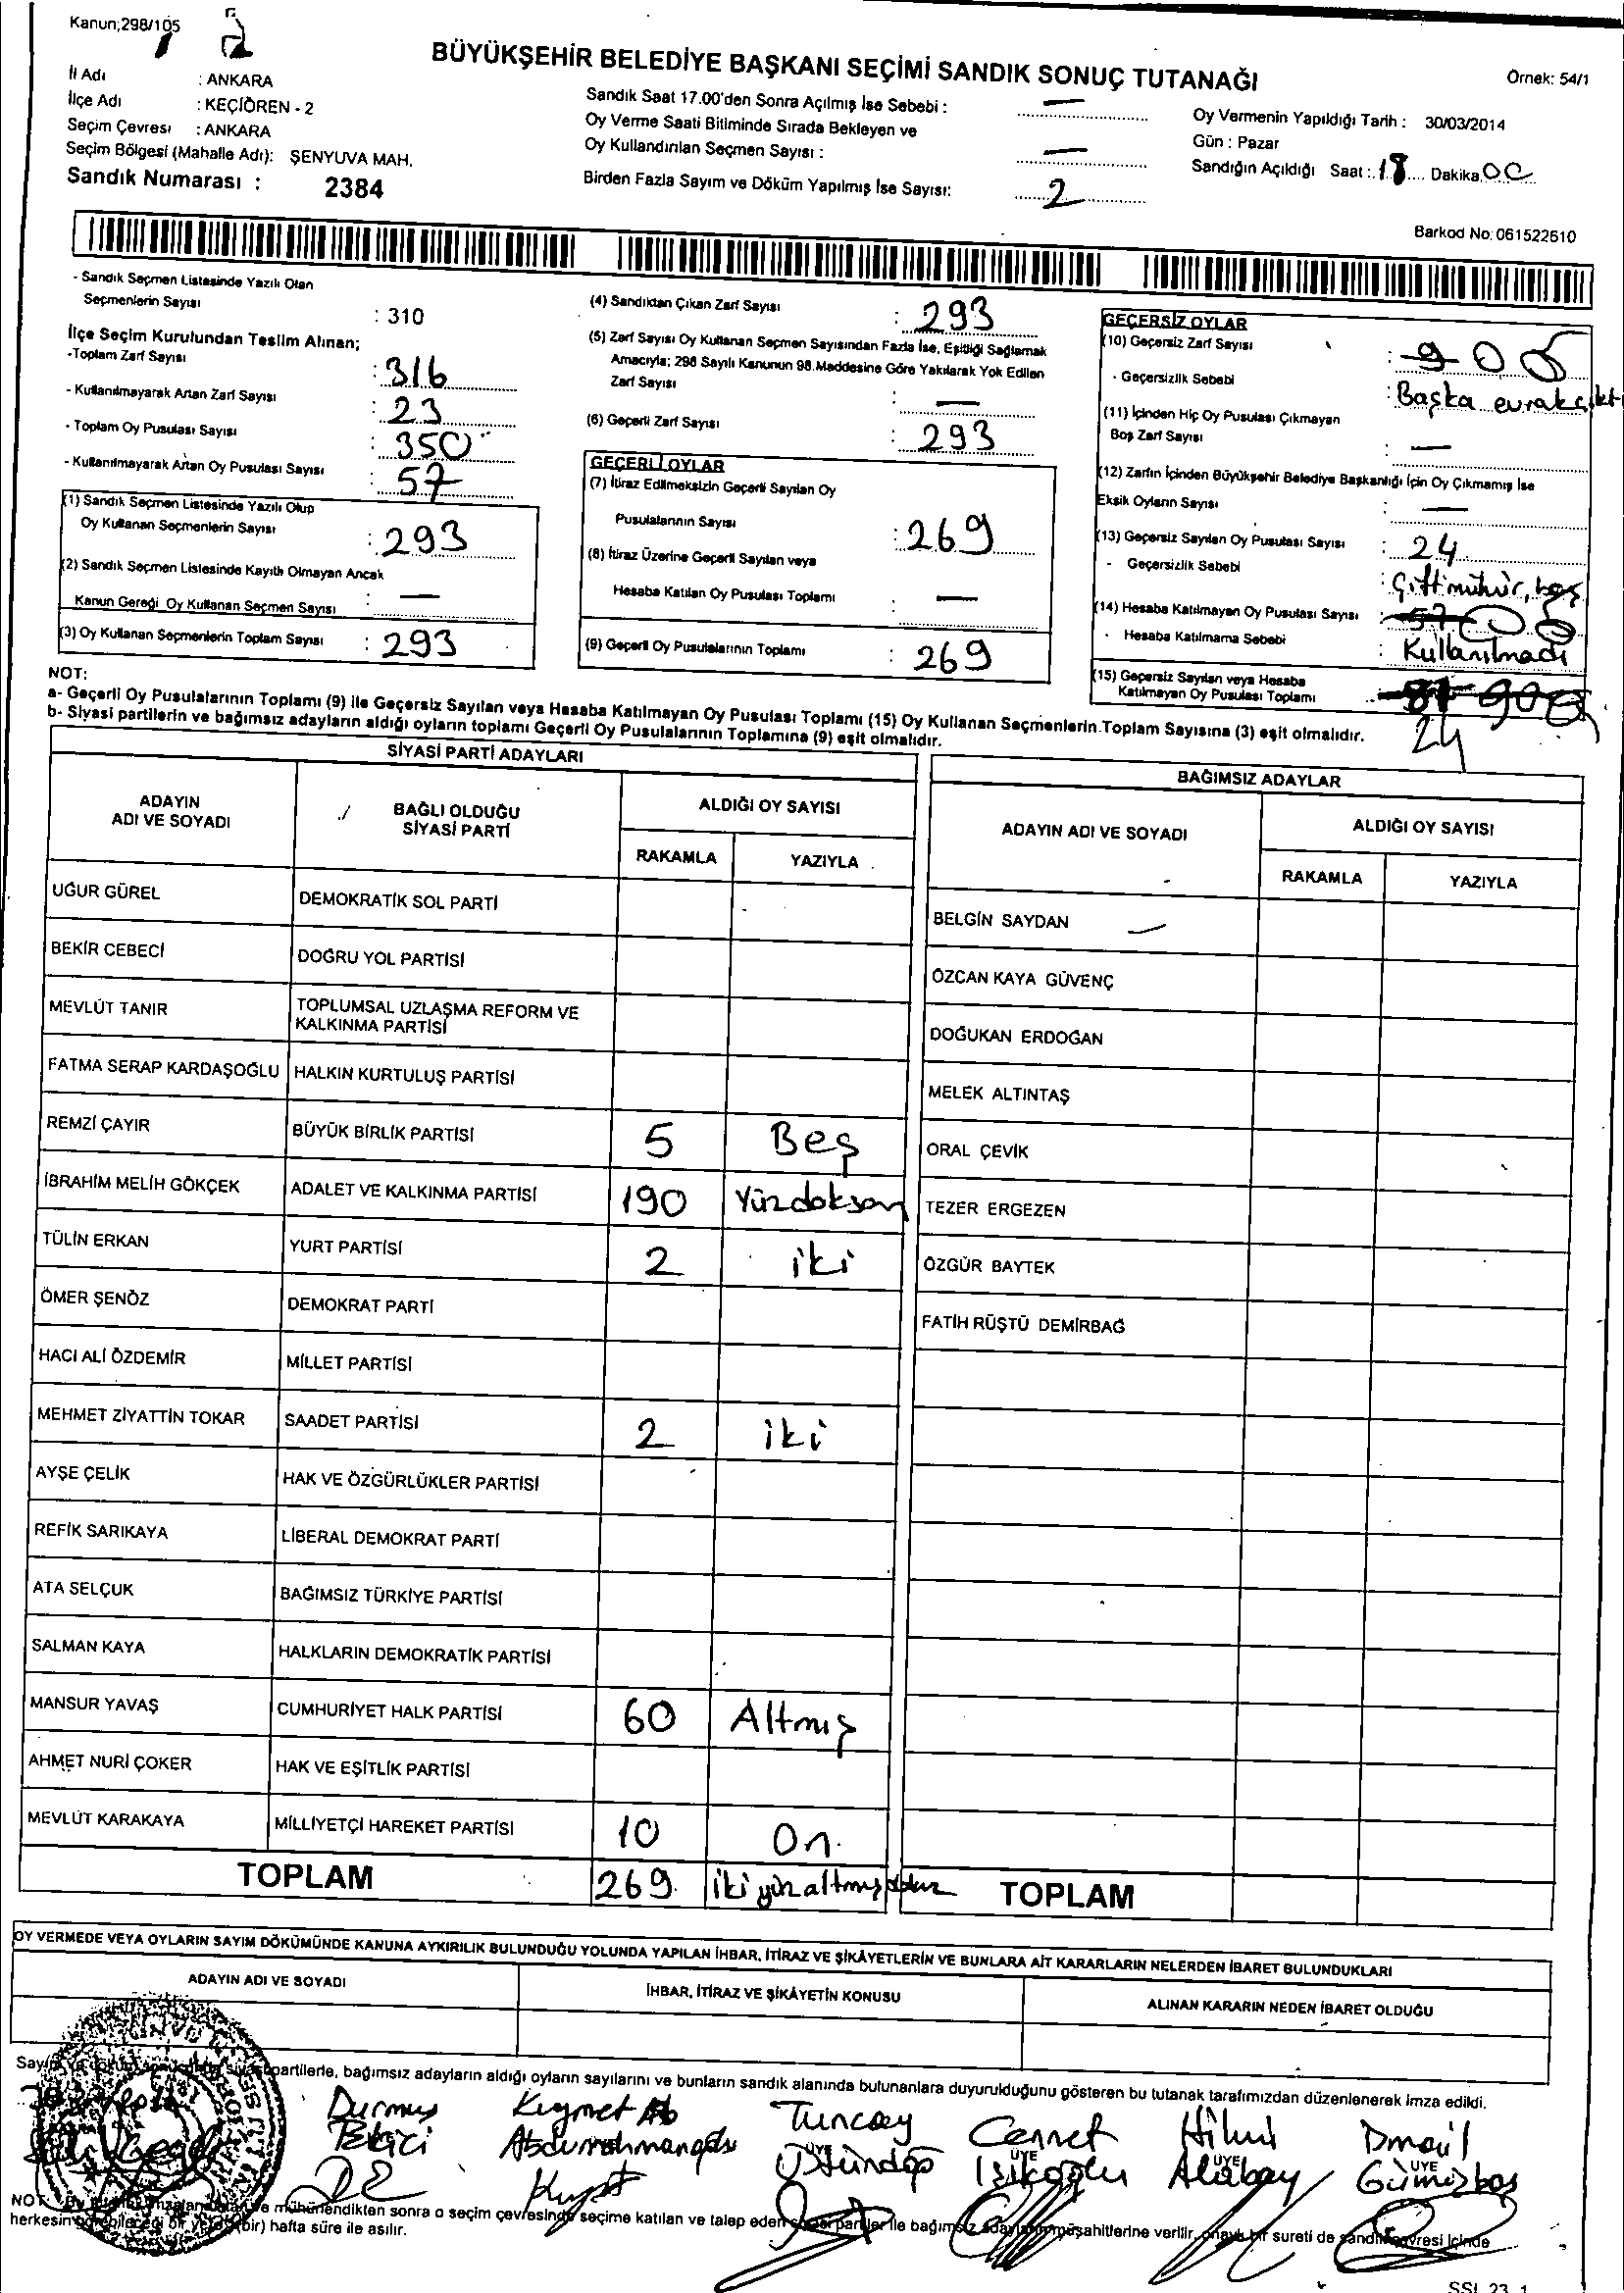 Kanun;298/105
BÜYÜKŞEHİR BELEDİYE BAŞKANI SEÇİMİ SANDIK SONUÇ TUTANAĞI
Örnek: 54/1
İl Adı : ANKARA
İlçe Adı : KEÇİÖREN - 2
Seçim Çevresi : ANKARA
Seçim Bölgesi (Mahalle Adı): ŞENYUVA MAH.
Sandık Numarası : 2384
Sandık Saat 17.00'den Sonra Açılmış İse Sebebi : —
Oy Verme Saati Bitiminde Sırada Bekleyen ve
Oy Kullandırılan Seçmen Sayısı : —
Birden Fazla Sayım ve Döküm Yapılmış İse Sayısı: 2
Oy Vermenin Yapıldığı Tarih : 30/03/2014
Gün : Pazar
Sandığın Açıldığı Saat : 18 Dakika 00
Barkod No: 061522610
- Sandık Seçmen Listesinde Yazılı Olan
Seçmenlerin Sayısı : 310
İlçe Seçim Kurulundan Teslim Alınan;
-Toplam Zarf Sayısı : 316
- Kullanılmayarak Artan Zarf Sayısı : 23
- Toplam Oy Pusulası Sayısı : 350
- Kullanılmayarak Artan Oy Pusulası Sayısı : 57
(1) Sandık Seçmen Listesinde Yazılı Olup
Oy Kullanan Seçmenlerin Sayısı : 293
(2) Sandık Seçmen Listesinde Kayıtlı Olmayan Ancak
Kanun Gereği Oy Kullanan Seçmen Sayısı : —
(3) Oy Kullanan Seçmenlerin Toplam Sayısı : 293
(4) Sandıktan Çıkan Zarf Sayısı : 293
(5) Zarf Sayısı Oy Kullanan Seçmen Sayısından Fazla İse, Eşitliği Sağlamak
Amacıyla; 298 Sayılı Kanunun 98.Maddesine Göre Yakılarak Yok Edilen
Zarf Sayısı : —
(6) Geçerli Zarf Sayısı : 293
GEÇERLİ OYLAR
(7) İtiraz Edilmeksizin Geçerli Sayılan Oy
Pusulalarının Sayısı : 269
(8) İtiraz Üzerine Geçerli Sayılan veya
Hesaba Katılan Oy Pusulası Toplamı : —
(9) Geçerli Oy Pusulalarının Toplamı : 269
GEÇERSİZ OYLAR
(10) Geçersiz Zarf Sayısı : 9 0
- Geçersizlik Sebebi : Başka evrak çıktı
(11) İçinden Hiç Oy Pusulası Çıkmayan
Boş Zarf Sayısı : —
(12) Zarfın İçinden Büyükşehir Belediye Başkanlığı İçin Oy Çıkmamış İse
Eksik Oyların Sayısı : —
(13) Geçersiz Sayılan Oy Pusulası Sayısı : 24
- Geçersizlik Sebebi : Çift mühür, boş
(14) Hesaba Katılmayan Oy Pusulası Sayısı : 57 0
- Hesaba Katılmama Sebebi : Kullanılmadı
(15) Geçersiz Sayılan veya Hesaba
Katılmayan Oy Pusulası Toplamı : 24
NOT:
a- Geçerli Oy Pusulalarının Toplamı (9) ile Geçersiz Sayılan veya Hesaba Katılmayan Oy Pusulası Toplamı (15) Oy Kullanan Seçmenlerin Toplam Sayısına (3) eşit olmalıdır.
b- Siyasi partilerin ve bağımsız adayların aldığı oyların toplamı Geçerli Oy Pusulalarının Toplamına (9) eşit olmalıdır.
SİYASİ PARTİ ADAYLARI
ADAYIN ADI VE SOYADI BAĞLI OLDUĞU SİYASİ PARTİ ALDIĞI OY SAYISI
RAKAMLA YAZIYLA
UĞUR GÜREL DEMOKRATİK SOL PARTİ
BEKİR CEBECİ DOĞRU YOL PARTİSİ
MEVLÜT TANIR TOPLUMSAL UZLAŞMA REFORM VE KALKINMA PARTİSİ
FATMA SERAP KARDAŞOĞLU HALKIN KURTULUŞ PARTİSİ
REMZİ ÇAYIR BÜYÜK BİRLİK PARTİSİ 5 Beş
İBRAHİM MELİH GÖKÇEK ADALET VE KALKINMA PARTİSİ 190 Yüzdoksan
TÜLİN ERKAN YURT PARTİSİ 2 iki
ÖMER ŞENÖZ DEMOKRAT PARTİ
HACI ALİ ÖZDEMİR MİLLET PARTİSİ
MEHMET ZİYATTİN TOKAR SAADET PARTİSİ 2 iki
AYŞE ÇELİK HAK VE ÖZGÜRLÜKLER PARTİSİ
REFİK SARIKAYA LİBERAL DEMOKRAT PARTİ
ATA SELÇUK BAĞIMSIZ TÜRKİYE PARTİSİ
SALMAN KAYA HALKLARIN DEMOKRATİK PARTİSİ
MANSUR YAVAŞ CUMHURİYET HALK PARTİSİ 60 Altmış
AHMET NURİ ÇOKER HAK VE EŞİTLİK PARTİSİ
MEVLÜT KARAKAYA MİLLİYETÇİ HAREKET PARTİSİ 10 On
TOPLAM 269 iki yüz altmış dokuz
BAĞIMSIZ ADAYLAR
ADAYIN ADI VE SOYADI ALDIĞI OY SAYISI
RAKAMLA YAZIYLA
BELGİN SAYDAN
ÖZCAN KAYA GÜVENÇ
DOĞUKAN ERDOĞAN
MELEK ALTINTAŞ
ORAL ÇEVİK
TEZER ERGEZEN
ÖZGÜR BAYTEK
FATİH RÜŞTÜ DEMİRBAĞ
TOPLAM
OY VERMEDE VEYA OYLARIN SAYIM DÖKÜMÜNDE KANUNA AYKIRILIK BULUNDUĞU YOLUNDA YAPILAN İHBAR, İTİRAZ VE ŞİKÂYETLERİN VE BUNLARA AİT KARARLARIN NELERDEN İBARET BULUNDUKLARI
ADAYIN ADI VE SOYADI İHBAR, İTİRAZ VE ŞİKÂYETİN KONUSU ALINAN KARARIN NEDEN İBARET OLDUĞU
partilerle, bağımsız adayların aldığı oyların sayılarını ve bunların sandık alanında bulunanlara duyurulduğunu gösteren bu tutanak tarafımızdan düzenlenerek imza edildi.
Durmuş Kıymet Tuncay Cennet Hilmi İsmail
Abdurrahmanoğlu Üstündağ Işıkoğlu Alabay Gümüşbaş
ÜYE ÜYE ÜYE ÜYE
NOT: mühürlendikten sonra o seçim çevresinde seçime katılan ve talep eden ile bağımsız müşahitlerine verilir, bir sureti de sandık çevresi içinde
herkesin (bir) hafta süre ile asılır.